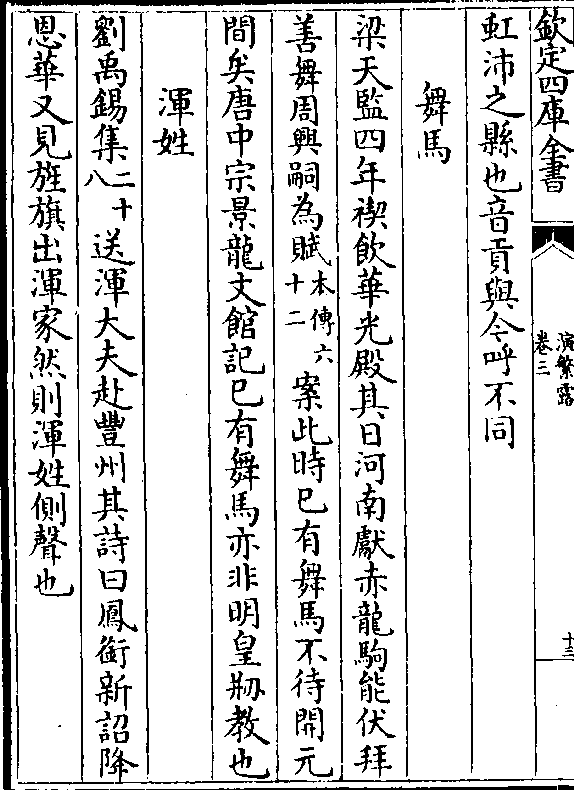 欽定四庫全書
演繁露
卷三
十三
虹沛之縣也音貢與今呼不同
舞馬
梁天監四年禊飲華光殿其日河南獻赤龍駒能伏拜
善舞周興嗣為賦本傳六十二案此時已有舞馬不待開元
間矣唐中宗景龍文館記已有舞馬亦非明皇刱教也
渾姓
劉禹錫集二十八送渾大夫赴豐州其詩曰鳳銜新詔降
恩華又見旌旗出渾家然則渾姓側聲也